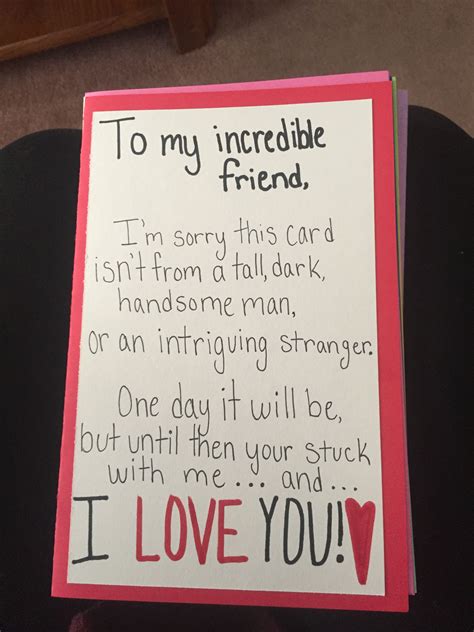 To my incredible
friend,
I'm sorry this card
isn't from a tall, dark,
handsome man,
or an intriguing stranger.
One day it will be,
but until then your stuck
with me ... and ...
I LOVE YOU!